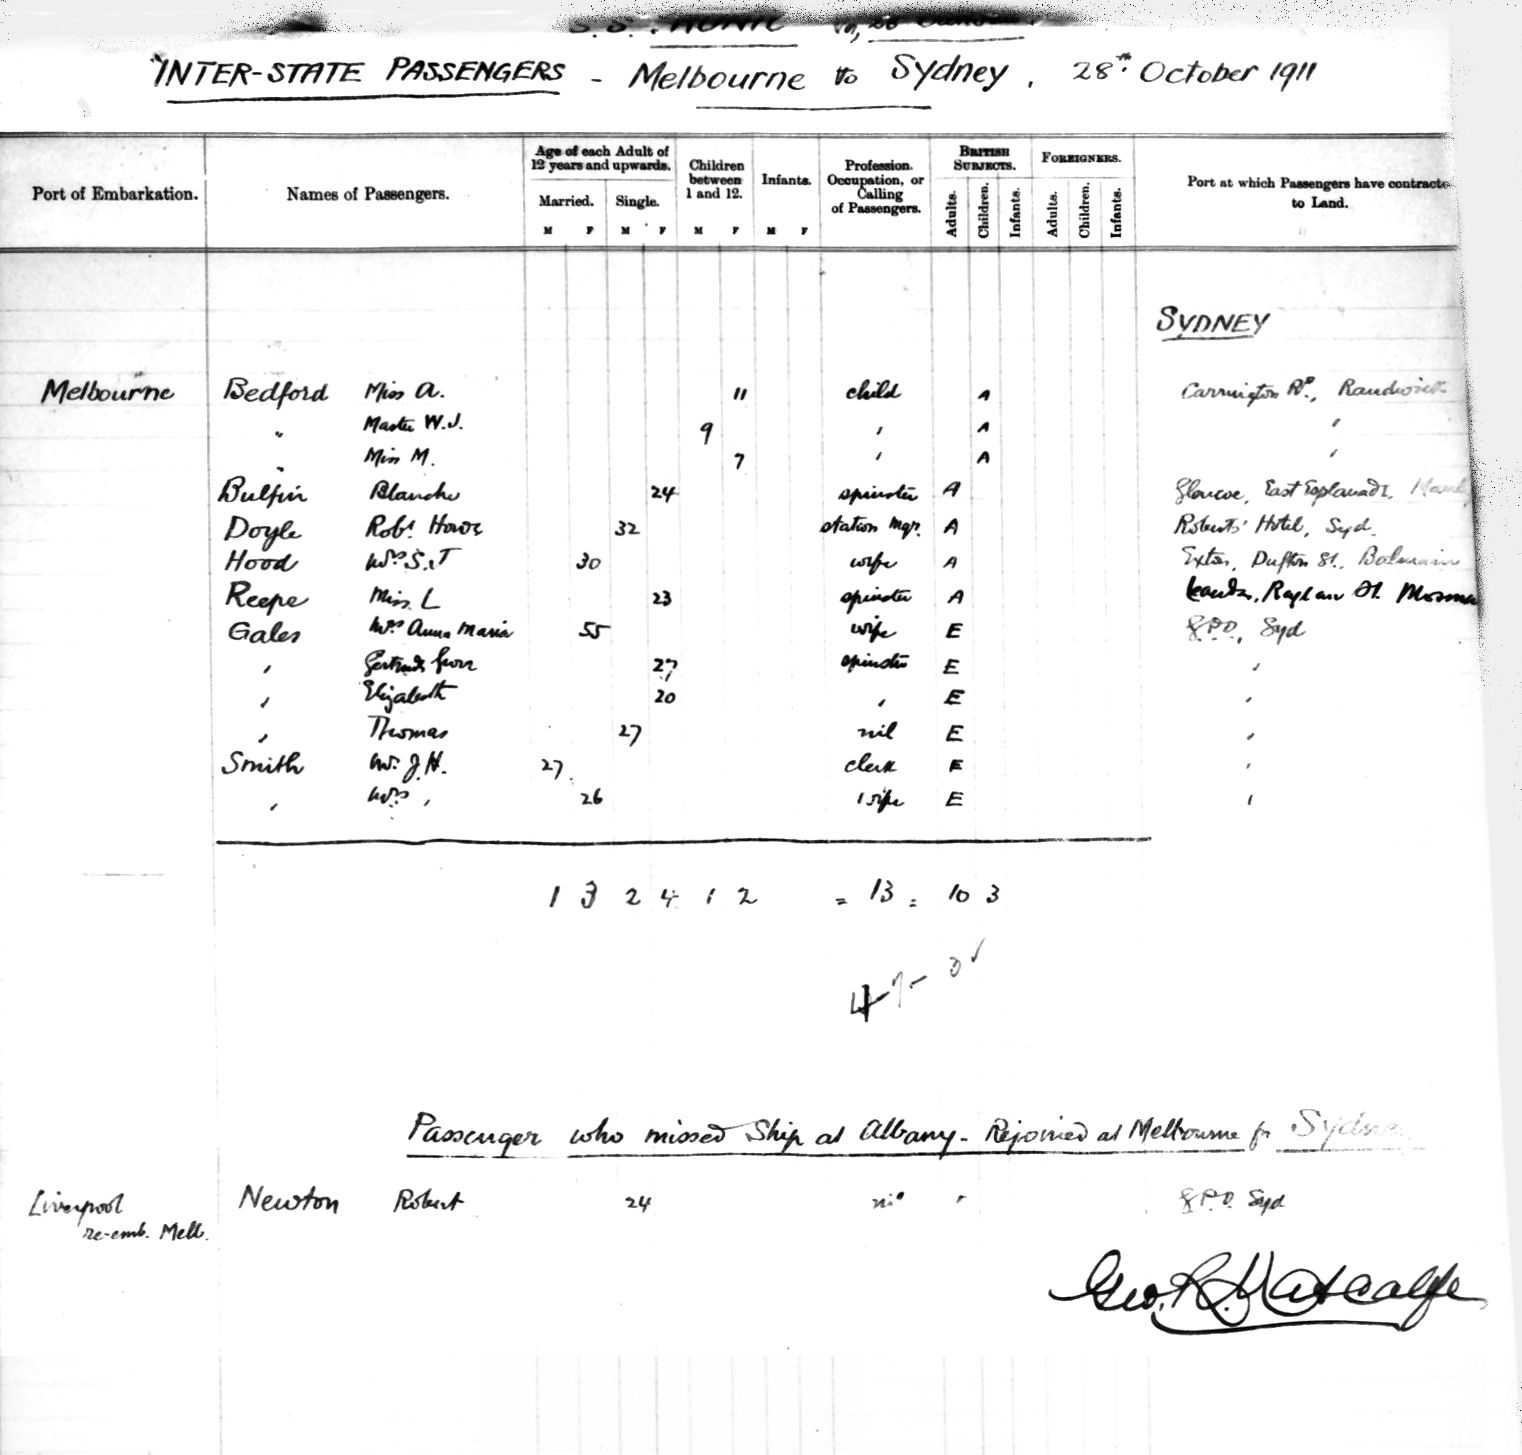 S.S.
INTER-STATE PASSENGERS - Melbourne to Sydney, 28th October 1911
Port of Embarkation. Names of Passengers. Age of each Adult of 12 years and upwards. Married. Single. Children between 1 and 12. Infants. Profession. Occupation, or Calling of Passengers. BRITISH SUBJECTS. FOREIGNERS. Port at which Passengers have contracte to Land.
M F M F M F M F Adults. Children. Infants. Adults. Children. Infants.
SYDNEY
Melbourne Bedford Miss A. 11 child A Carrington Rd., Randwick
" Master W.J. 9 ' A '
" Miss M. 7 ' A '
Bulfin Blanche 24 spinster A Glencoe, East Esplanade, Manly
Doyle Robt. 32 station Mgr. A Roberts' Hotel, Syd.
Hood Mrs S.T 30 wife A St., Balmain
Reepe Miss L 23 spinster A St. Mosma
Gales Mrs Anna Maria 55 wife E G.P.O., Syd
' 27 spinster E '
' Elizabeth 20 ' E '
' Thomas 27 nil E '
Smith Mr. J.H. 27 clerk E '
' Mrs ' 26 wife E '
1 3 2 4 1 2 = 13 = 10 3
Passenger who missed Ship at Albany - Rejoined at Melbourne for Sydney
Liverpool Newton Robert 24 nil " G.P.O. Syd
re-emb. Melb.
Geo. R. Metcalfe